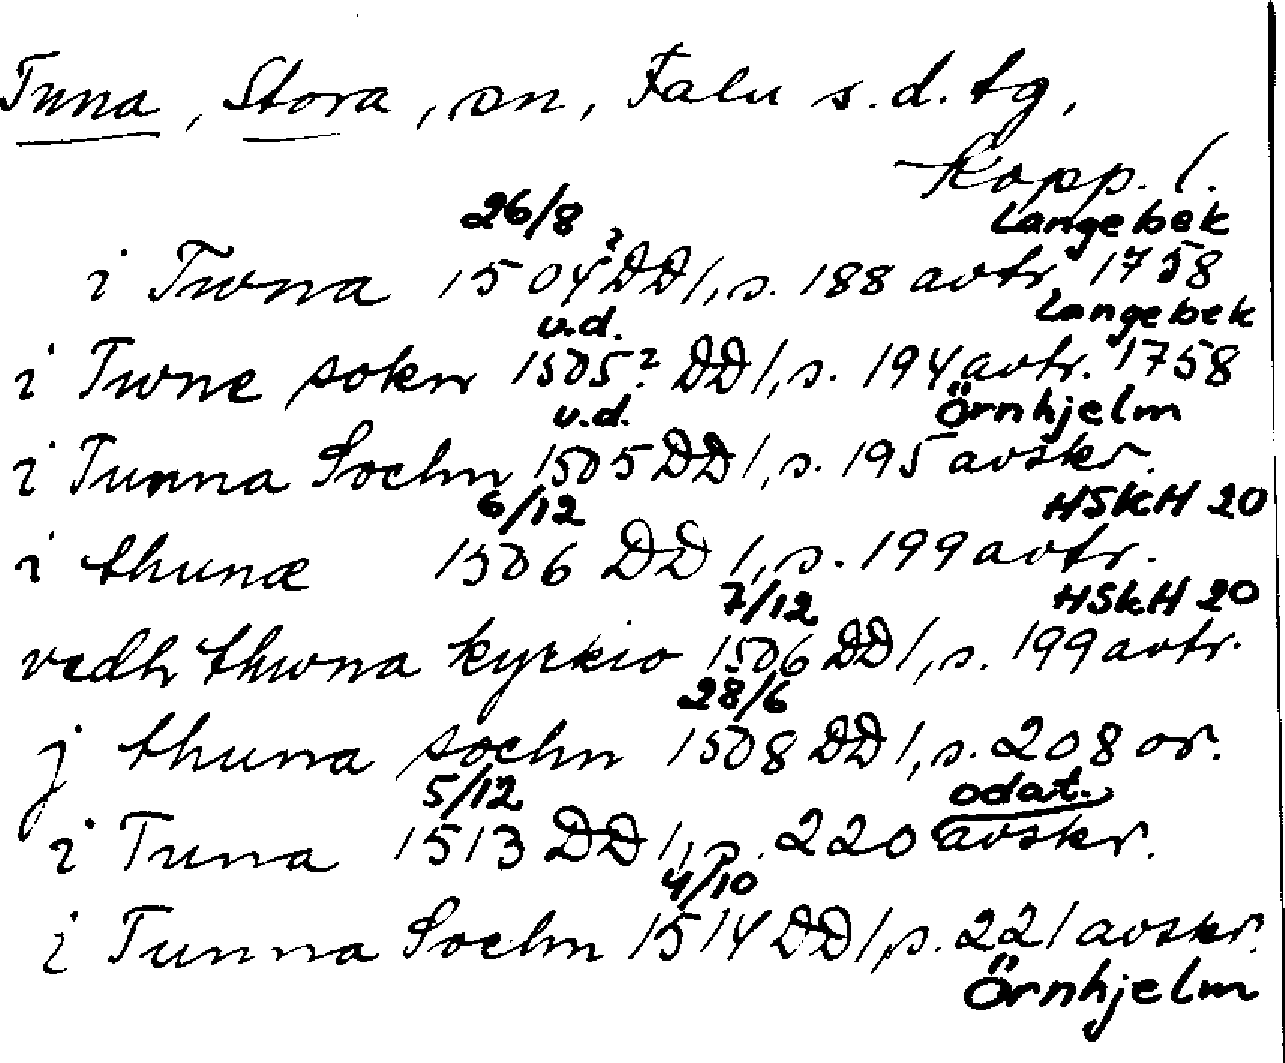 Tuna, Stora, sn, Falu s.d. tg,
Kopp. l.
26/8 Langebek
i Twna 1504? DD 1, s. 188 avtr. 1758
u.d. Langebek
i Twne sokn 1505? DD 1, s. 194 avtr. 1758
u.d. Örnhjelm
i Tunna Sochn 1505 DD 1, s. 195 avskr.
6/12 HSkH 20
i thunæ 1506 DD 1, s. 199 avtr.
7/12 HSkH 20
vedh thwna kyrkio 1506 DD 1, s. 199 avtr.
28/6
j thuna sochn 1508 DD 1, s. 208 or.
5/12 odat.
i Tuna 1513 DD 1, s. 220 avskr.
4/10
i Tunna Sochn 1514 DD 1, s. 221 avskr.
Örnhjelm